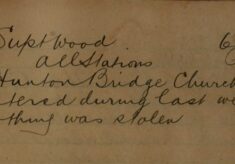 Supt Wood 6
All Stations
Hunton Bridge Church
tered during last we
thing was stolen